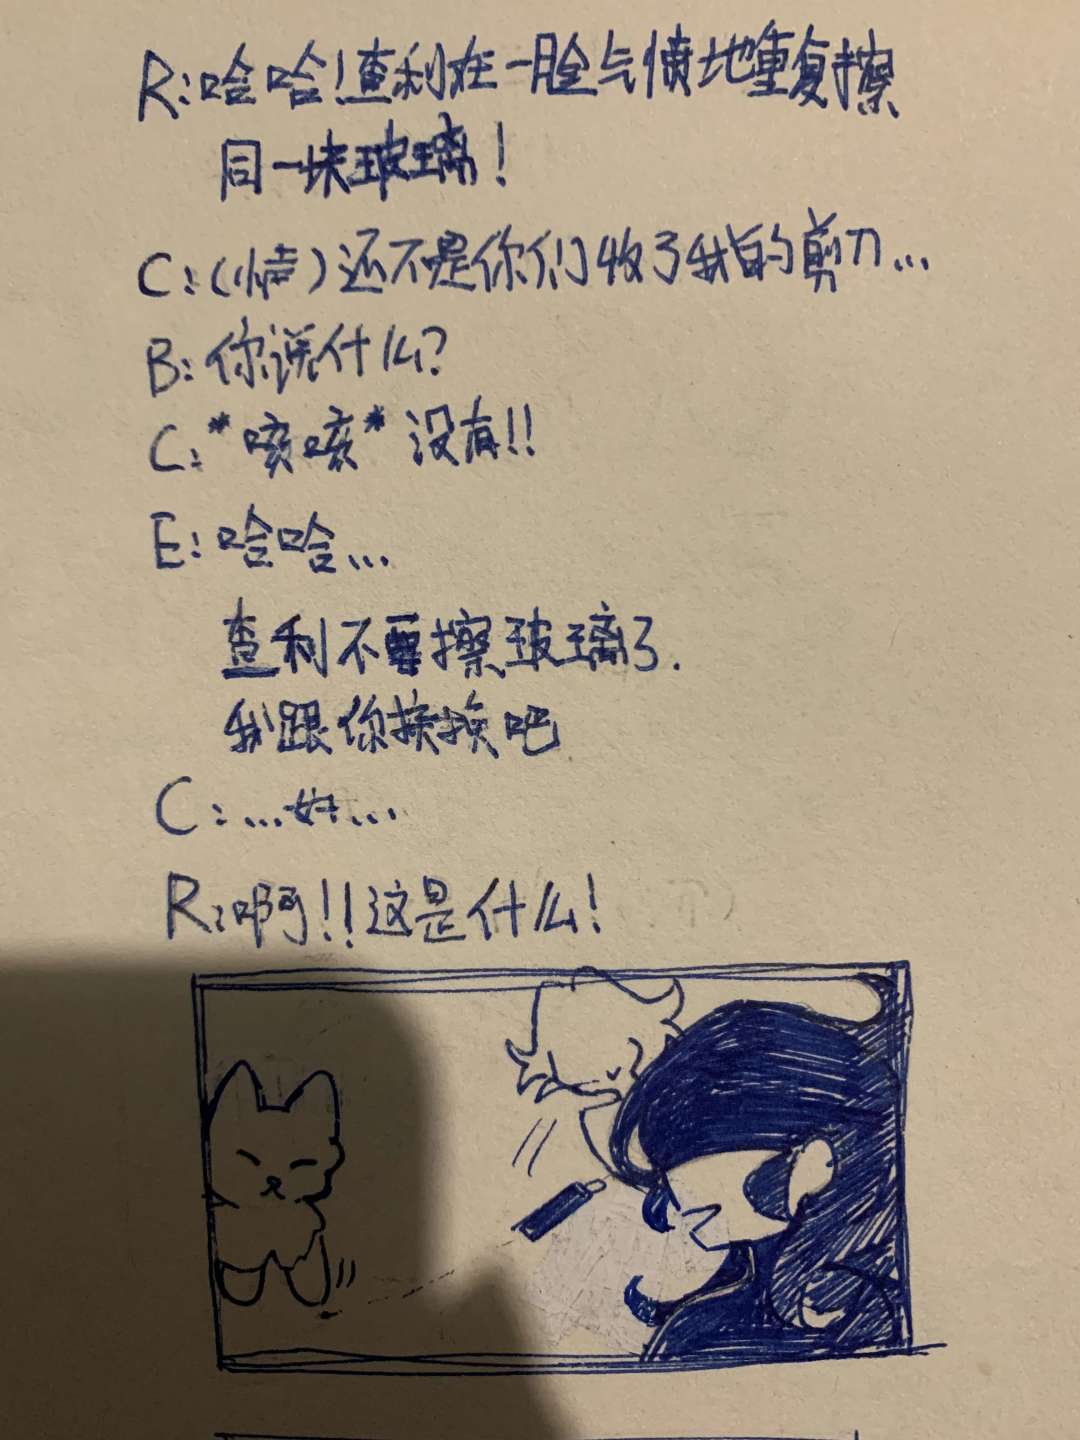 R:哈哈!查利在一脸气愤地重复擦
同一块玻璃!
C:(悄声)还不是你们收了我的剪刀...
B:你说什么?
C:*咳咳*没有!!
E:哈哈...
查利不要擦玻璃了.
我跟你换换吧
C:...好...
R:啊!!这是什么!